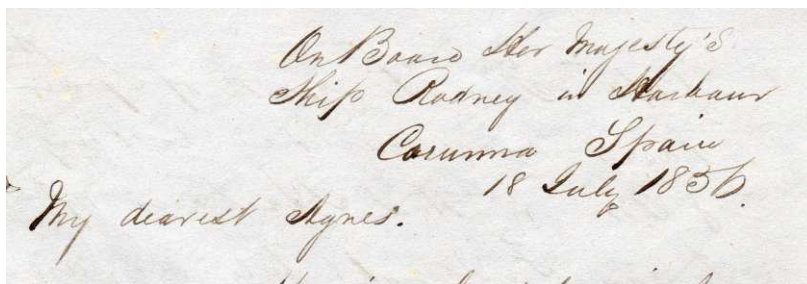 On Board Her Majesty's
Ship Rodney in Harbour
Corunna Spain
18 July 1856.
My dearest Agnes.